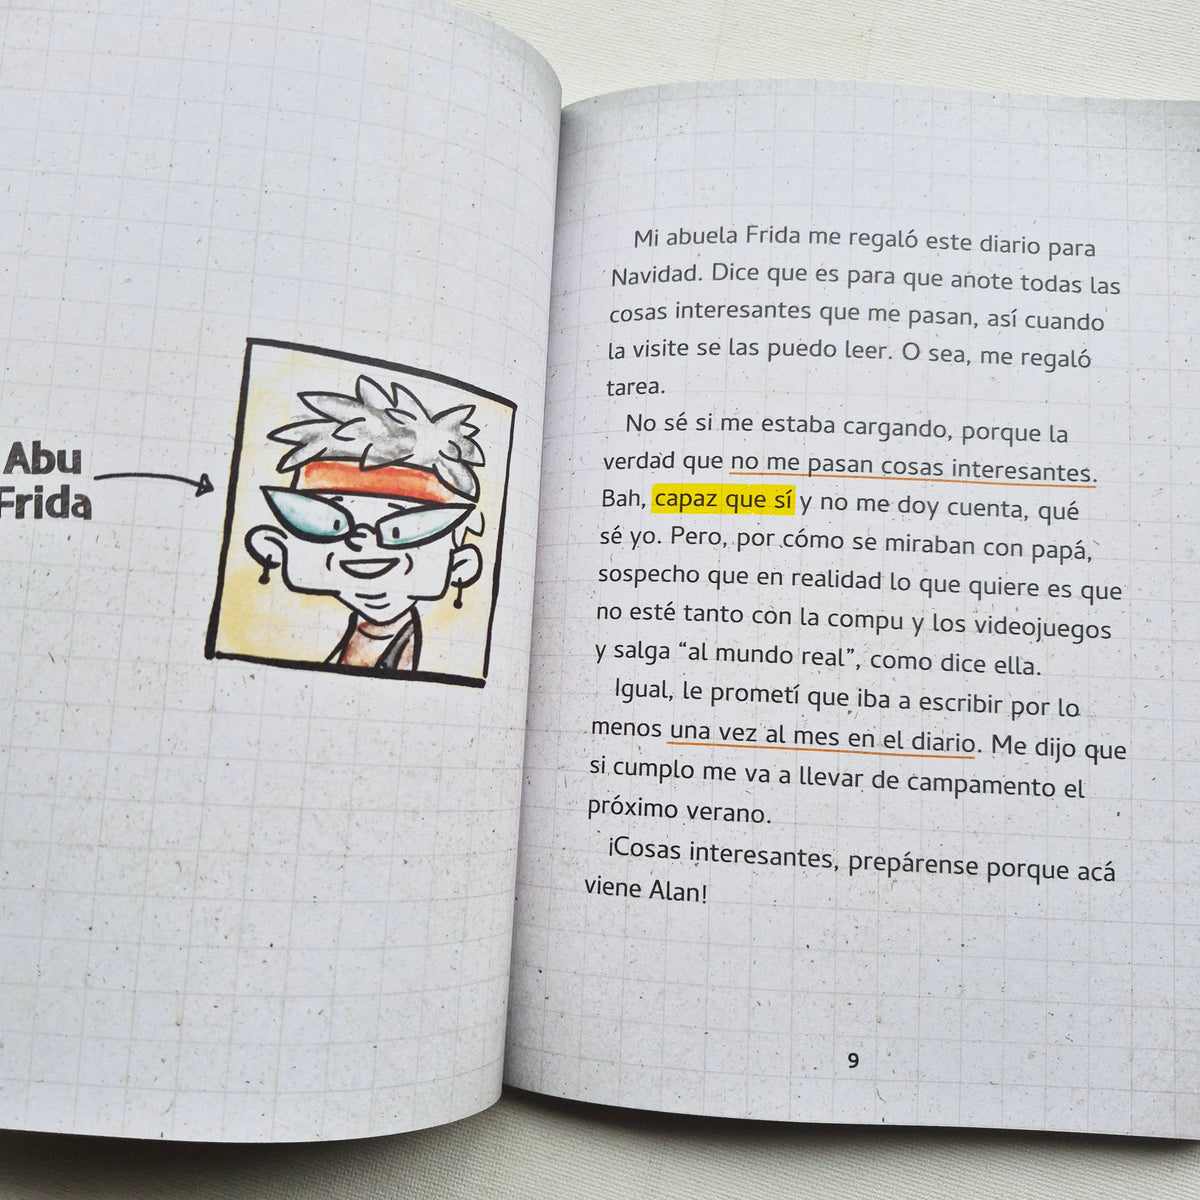 Abu
Frida
Mi abuela Frida me regaló este diario para
Navidad. Dice que es para que anote todas las
cosas interesantes que me pasan, así cuando
la visite se las puedo leer. O sea, me regaló
tarea.
No sé si me estaba cargando, porque la
verdad que no me pasan cosas interesantes.
Bah, capaz que sí y no me doy cuenta, qué
sé yo. Pero, por cómo se miraban con papá,
sospecho que en realidad lo que quiere es que
no esté tanto con la compu y los videojuegos
y salga “al mundo real”, como dice ella.
Igual, le prometí que iba a escribir por lo
menos una vez al mes en el diario. Me dijo que
si cumplo me va a llevar de campamento el
próximo verano.
¡Cosas interesantes, prepárense porque acá
viene Alan!
9